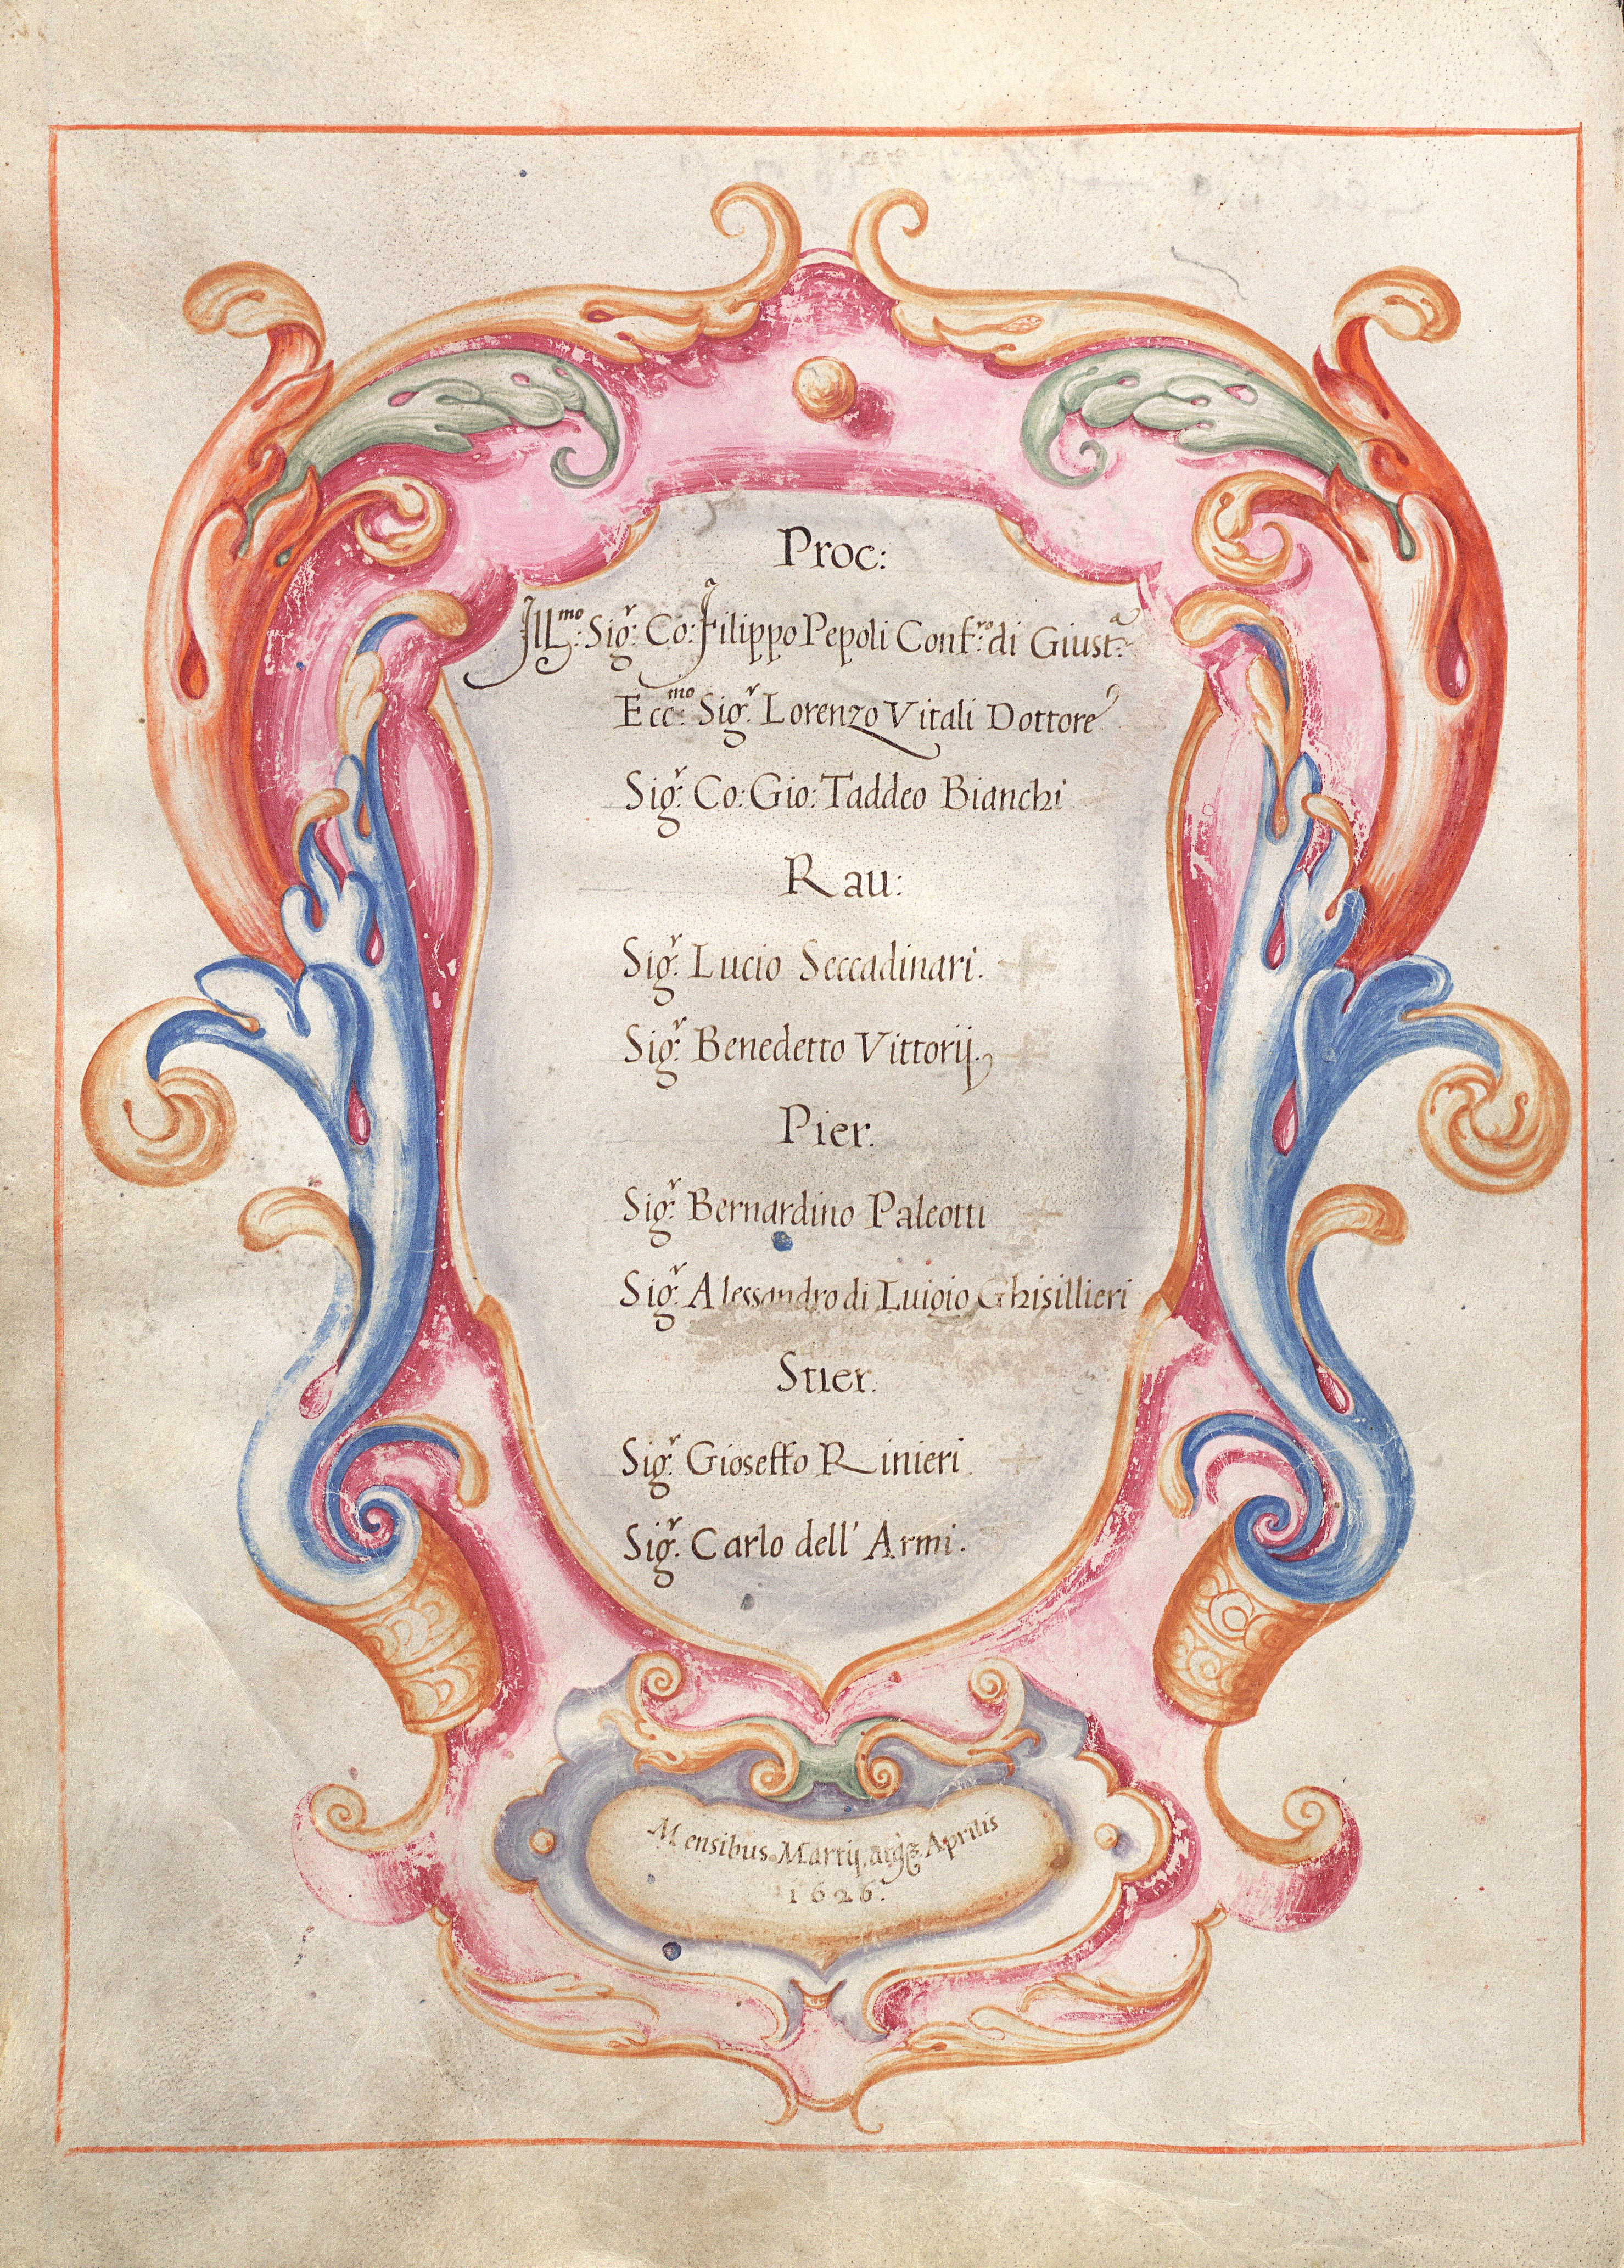 Proc:
Ill.mo Sig.r Co: Filippo Pepoli Conf.ro di Giust.a
Ecc.mo Sig.r Lorenzo Vitali Dottore
Sig.r Co: Gio: Taddeo Bianchi
Rau:
Sig.r Lucio Seccadinari.
Sig.r Benedetto Vittorij.
Pier.
Sig.r Bernardino Paleotti
Sig.r Alessandro di Luigio Ghisillieri
Stier.
Sig.r Gioseffo Rinieri
Sig.r Carlo dell' Armi.
Mensibus Martij, atq3 Aprilis
1626.